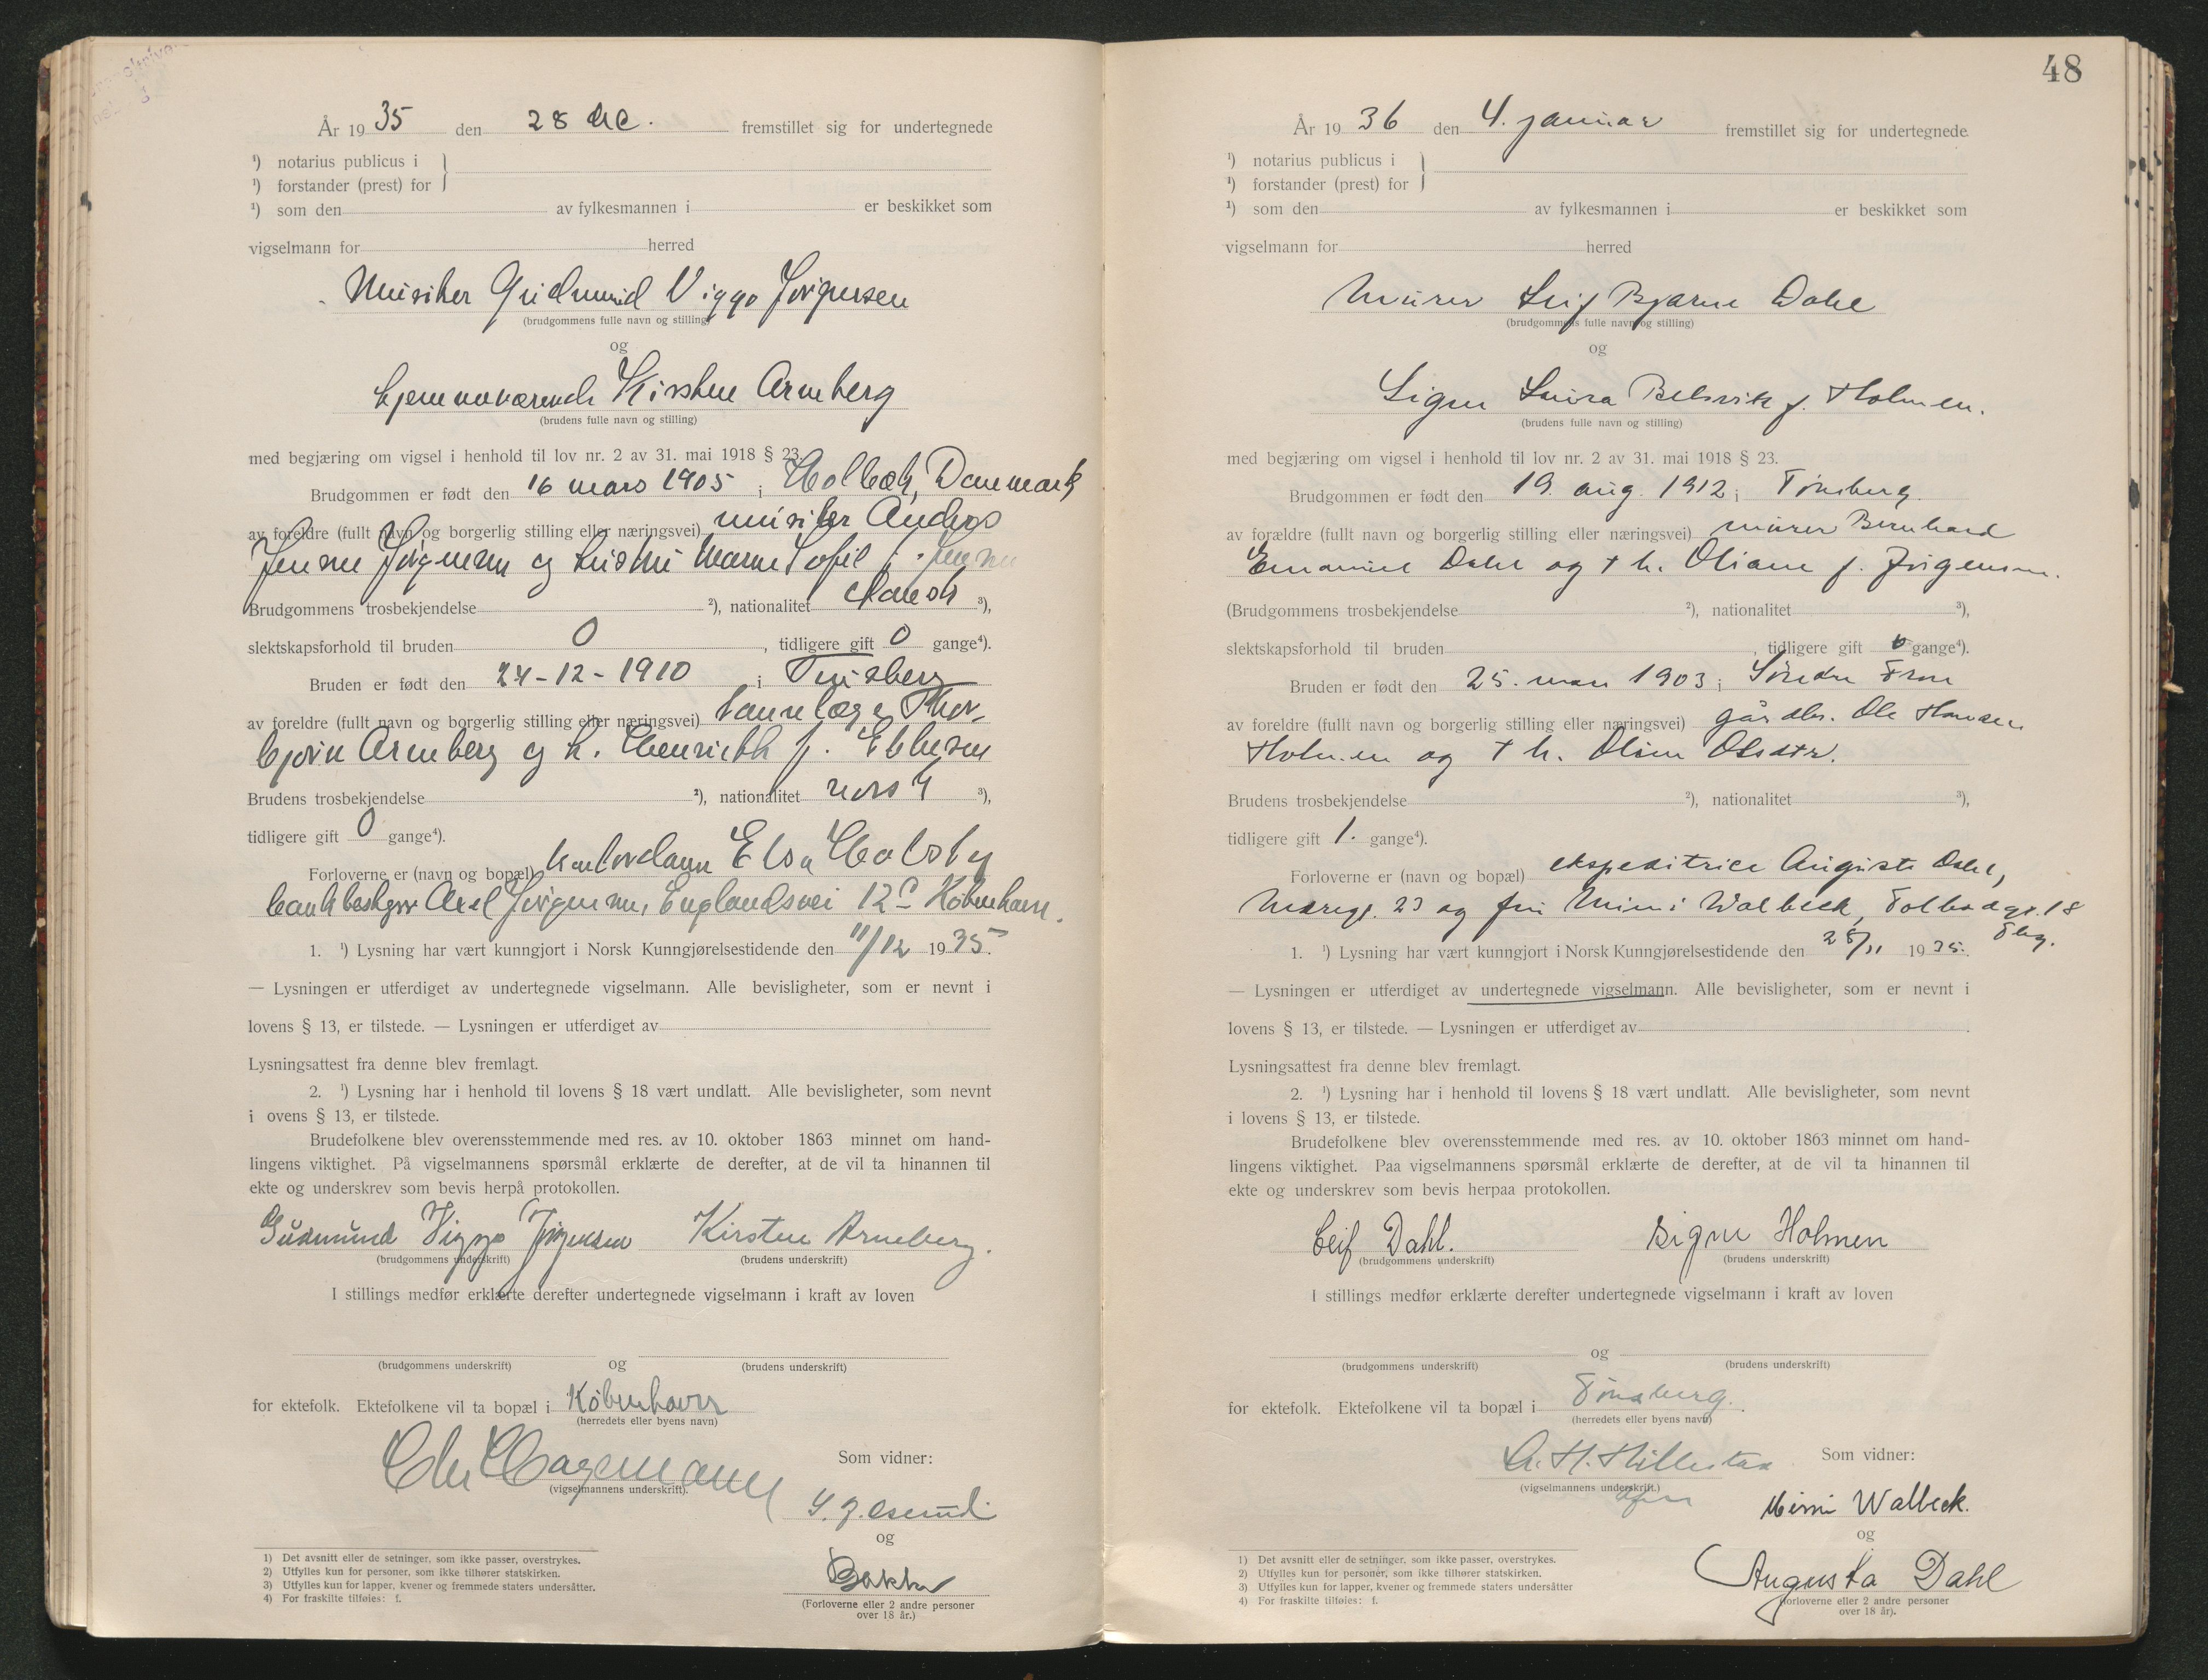 År 1935 den 28 dec. fremstillet sig for undertegnede
¹) notarius publicus i
¹) forstander (prest) for
¹) som den av fylkesmannen i er beskikket som
vigselmann for herred
Musiker Gudmund Viggo Jørgensen
(brudgommens fulle navn og stilling)
og
hjemmeværende Kirsten Arneberg
(brudens fulle navn og stilling)
med begjæring om vigsel i henhold til lov nr. 2 av 31. mai 1918 § 23.
Brudgommen er født den 16 mars 1905 i Holbæk, Danmark
av foreldre (fullt navn og borgerlig stilling eller næringsvei) musiker Anders
Jensen Jørgensen og Marie Sofie f. Jensen
Brudgommens trosbekjendelse ²), nationalitet dansk ³),
slektskapsforhold til bruden 0, tidligere gift 0 gange⁴).
Bruden er født den 27-12-1910 i Tønsberg
av foreldre (fullt navn og borgerlig stilling eller næringsvei) tannlæge Thor-
bjørn Arneberg og h. Henriette f. Ebbesen
Brudens trosbekjendelse ²), nationalitet norsk ³),
tidligere gift 0 gange⁴).
Forloverne er (navn og bopæl) kontordame Elsa Halsby
bankbestyrer Axel Jørgensen, Englandsvei 12 København.
1. ¹) Lysning har vært kunngjort i Norsk Kunngjørelsestidende den 11/12 1935.
— Lysningen er utferdiget av undertegnede vigselmann. Alle bevisligheter, som er nevnt i
lovens § 13, er tilstede. — Lysningen er utferdiget av
Lysningsattest fra denne blev fremlagt.
2. ¹) Lysning har i henhold til lovens § 18 vært undlatt. Alle bevisligheter, som nevnt
i ovens § 13, er tilstede.
Brudefolkene blev overensstemmende med res. av 10. oktober 1863 minnet om hand-
lingens viktighet. På vigselmannens spørsmål erklærte de derefter, at de vil ta hinannen til
ekte og underskrev som bevis herpå protokollen.
Gudmund Viggo Jørgensen Kirsten Arneberg.
(brudgommens underskrift) (brudens underskrift)
I stillings medfør erklærte derefter undertegnede vigselmann i kraft av loven
og
(brudgommens underskrift) (brudens underskrift)
for ektefolk. Ektefolkene vil ta bopæl i København
(herredets eller byens navn)
Chr Hagemann
(vigselmannens underskrift).
Som vidner:
og
Bakke
(Forloverne eller 2 andre personer
over 18 år.)
1) Det avsnitt eller de setninger, som ikke passer, overstrykes.
2) Utfylles kun for personer, som ikke tilhører statskirken.
3) Utfylles kun for lapper, kvener og fremmede staters undersåtter.
4) For fraskilte tilføies: f.
48
År 1936 den 4. januar fremstillet sig for undertegnede
¹) notarius publicus i
¹) forstander (prest) for
¹) som den av fylkesmannen i er beskikket som
vigselmann for herred
Murer Leif Bjarne Dahl
(brudgommens fulle navn og stilling)
og
Signe Lovisa Belsvik f. Holmen.
(brudens fulle navn og stilling)
med begjæring om vigsel i henhold til lov nr. 2 av 31. mai 1918 § 23.
Brudgommen er født den 19. aug. 1912 i Tønsberg.
av forældre (fullt navn og borgerlig stilling eller næringsvei) murer Bernhard
Emanuel Dahl og † h. Oliane f. Jørgensen.
(Brudgommens trosbekjendelse ²), nationalitet ³),
slektskapsforhold til bruden, tidligere gift 0 gange⁴).
Bruden er født den 25. mars 1903 i Søndre Fron
av foreldre (fullt navn og borgerlig stilling eller næringsvei) gårdbr. Ole Hansen
Holmen og † h. Oline Olsdtr.
Brudens trosbekjendelse ²), nationalitet ³),
tidligere gift 1. gange⁴).
Forloverne er (navn og bopæl) ekspeditrice Augusta Dahl,
23 og fru Mimi Walbeck, Tolbodgt. 18
Tbg.
1. ¹) Lysning har vært kunngjort i Norsk Kunngjørelsestidende den 28/11 1935.
— Lysningen er utferdiget av undertegnede vigselmann. Alle bevisligheter, som er nevnt i
lovens § 13, er tilstede. — Lysningen er utferdiget av
Lysningsattest fra denne blev fremlagt.
2. ¹) Lysning har i henhold til lovens § 18 vært undlatt. Alle bevisligheter, som nevnt
i lovens § 13, er tilstede.
Brudefolkene blev overensstemmende med res. av 10. oktober 1863 minnet om hand-
lingens viktighet. Paa vigselmannens spørsmål erklærte de derefter, at de vil ta hinannen til
ekte og underskrev som bevis herpaa protokollen.
Leif Dahl. Signe Holmen
(brudgommens underskrift) (brudens underskrift)
I stillings medfør erklærte derefter undertegnede vigselmann i kraft av loven
og
(brudgommens underskrift) (brudens underskrift)
for ektefolk. Ektefolkene vil ta bopæl i Tønsberg.
(herredets eller byens navn)
A. H. Hillestad
(vigselmannens underskrift.)
Som vidner:
Mimi Walbeck.
og
Augusta Dahl
(Forloverne eller 2 andre personer
over 18 år).
1) Det avsnitt eller de setninger, som ikke passer, overstrykes.
2) Utfylles kun for personer, som ikke tilhører statskirken.
3) Utfylles kun for lapper, kvener og fremmede staters undersåtter
4) For fraskilte tilføies: f.